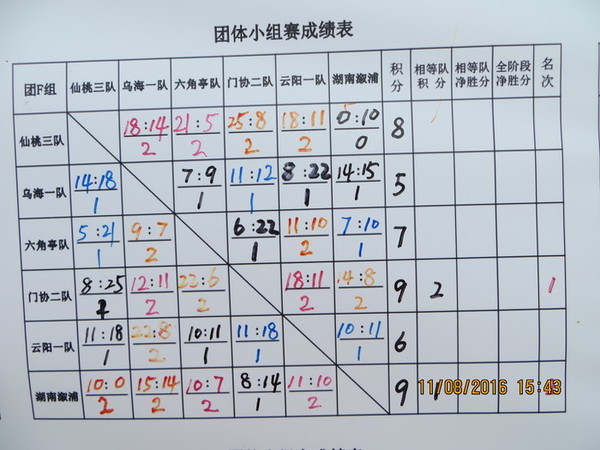 团体小组赛成绩表
团F组 仙桃三队 乌海一队 六角亭队 门协二队 云阳一队 湖南溆浦 积分 相等队积分 相等队净胜分 全阶段净胜分 名次
仙桃三队 18:14 21:5 25:8 18:11 0:10 8
2 2 2 2 0
乌海一队 14:18 7:9 11:12 8:22 14:15 5
1 1 1 1 1
六角亭队 5:21 9:7 6:22 11:10 7:10 7
1 2 1 2 1
门协二队 8:25 12:11 22:6 18:11 14:8 9 2 1
1 2 2 2 2
云阳一队 11:18 22:8 10:11 11:18 10:11 6
1 2 1 1 1
湖南溆浦 10:0 15:14 10:7 8:14 11:10 9 1
2 2 2 1 2
11/08/2016 15:43